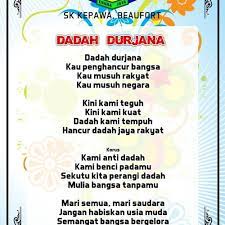 SK KEPAWA, BEAUFORT
DADAH DURJANA
Dadah durjana
Kau penghancur bangsa
Kau musuh rakyat
Kau musuh negara
Kini kami teguh
Kini kami kuat
Dadah kami tempuh
Hancur dadah jaya rakyat
Korus
Kami anti dadah
Kami benci padamu
Sekutu kita perangi dadah
Mulia bangsa tanpamu
Mari semua, mari saudara
Jangan habiskan usia muda
Semangat bangsa bergelora